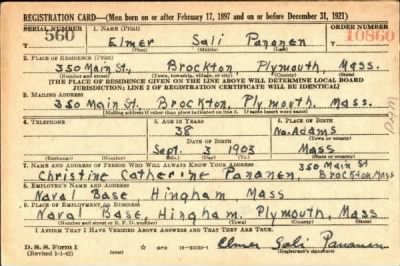 REGISTRATION CARD—(Men born on or after February 17, 1897 and on or before December 31, 1921)
SERIAL NUMBER 1. NAME (Print) ORDER NUMBER
560 Elmer Sali Pananen 10860
(First) (Middle) (Last)
2. PLACE OF RESIDENCE (Print)
350 Main St., Brockton Plymouth Mass.
(Number and street) (Town, township, village, or city) (County) (State)
[THE PLACE OF RESIDENCE GIVEN ON THE LINE ABOVE WILL DETERMINE LOCAL BOARD
JURISDICTION; LINE 2 OF REGISTRATION CERTIFICATE WILL BE IDENTICAL]
3. MAILING ADDRESS
350 Main St., Brockton, Plymouth, Mass.
[Mailing address if other than place indicated on line 2. If same insert word same]
4. TELEPHONE 5. AGE IN YEARS 6. PLACE OF BIRTH
38 No. Adams
DATE OF BIRTH (Town or county)
Sept. 3 1903 Mass
(Exchange) (Number) (Mo.) (Day) (Yr.) (State or country)
7. NAME AND ADDRESS OF PERSON WHO WILL ALWAYS KNOW YOUR ADDRESS 350 Main St
Christine Catherine Pananen, Brockton, Mass
8. EMPLOYER'S NAME AND ADDRESS
Naval Base Hingham Mass
9. PLACE OF EMPLOYMENT OR BUSINESS
Naval Base, Hingham. Plymouth, Mass
(Number and street or R. F. D. number) (Town) (County) (State)
I AFFIRM THAT I HAVE VERIFIED ABOVE ANSWERS AND THAT THEY ARE TRUE.
D. S. S. Form 1 GPO Elmer Sali Pananen
(Revised 1-1-42) (Registrant's signature)